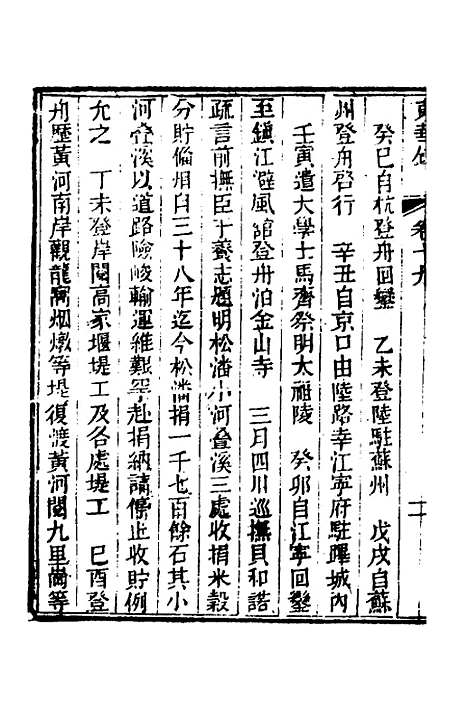 東華錄 卷十九
癸巳自杭登舟回鑾　乙未登陸駐蘇州　戊戌自蘇
州登舟啓行　辛丑自京口由陸路幸江寧府駐蹕城內
壬寅遣大學士馬齊祭明太祖陵　癸卯自江寧回鑾
至鎮江避風館登舟泊金山寺　三月四川巡撫貝和諾
疏言前撫臣于養志題明松潘小河叠溪三處收捐米穀
分貯備用自三十八年迄今松潘捐一千七百餘石其小
河叠溪以道路險峻輸運維艱罕赴捐納請停止收貯例
允之　丁未登岸閱高家堰堤工及各處堤工　己酉登
舟歷黃河南岸觀龍窩烟墩等堤復渡黃河閱九里崗等